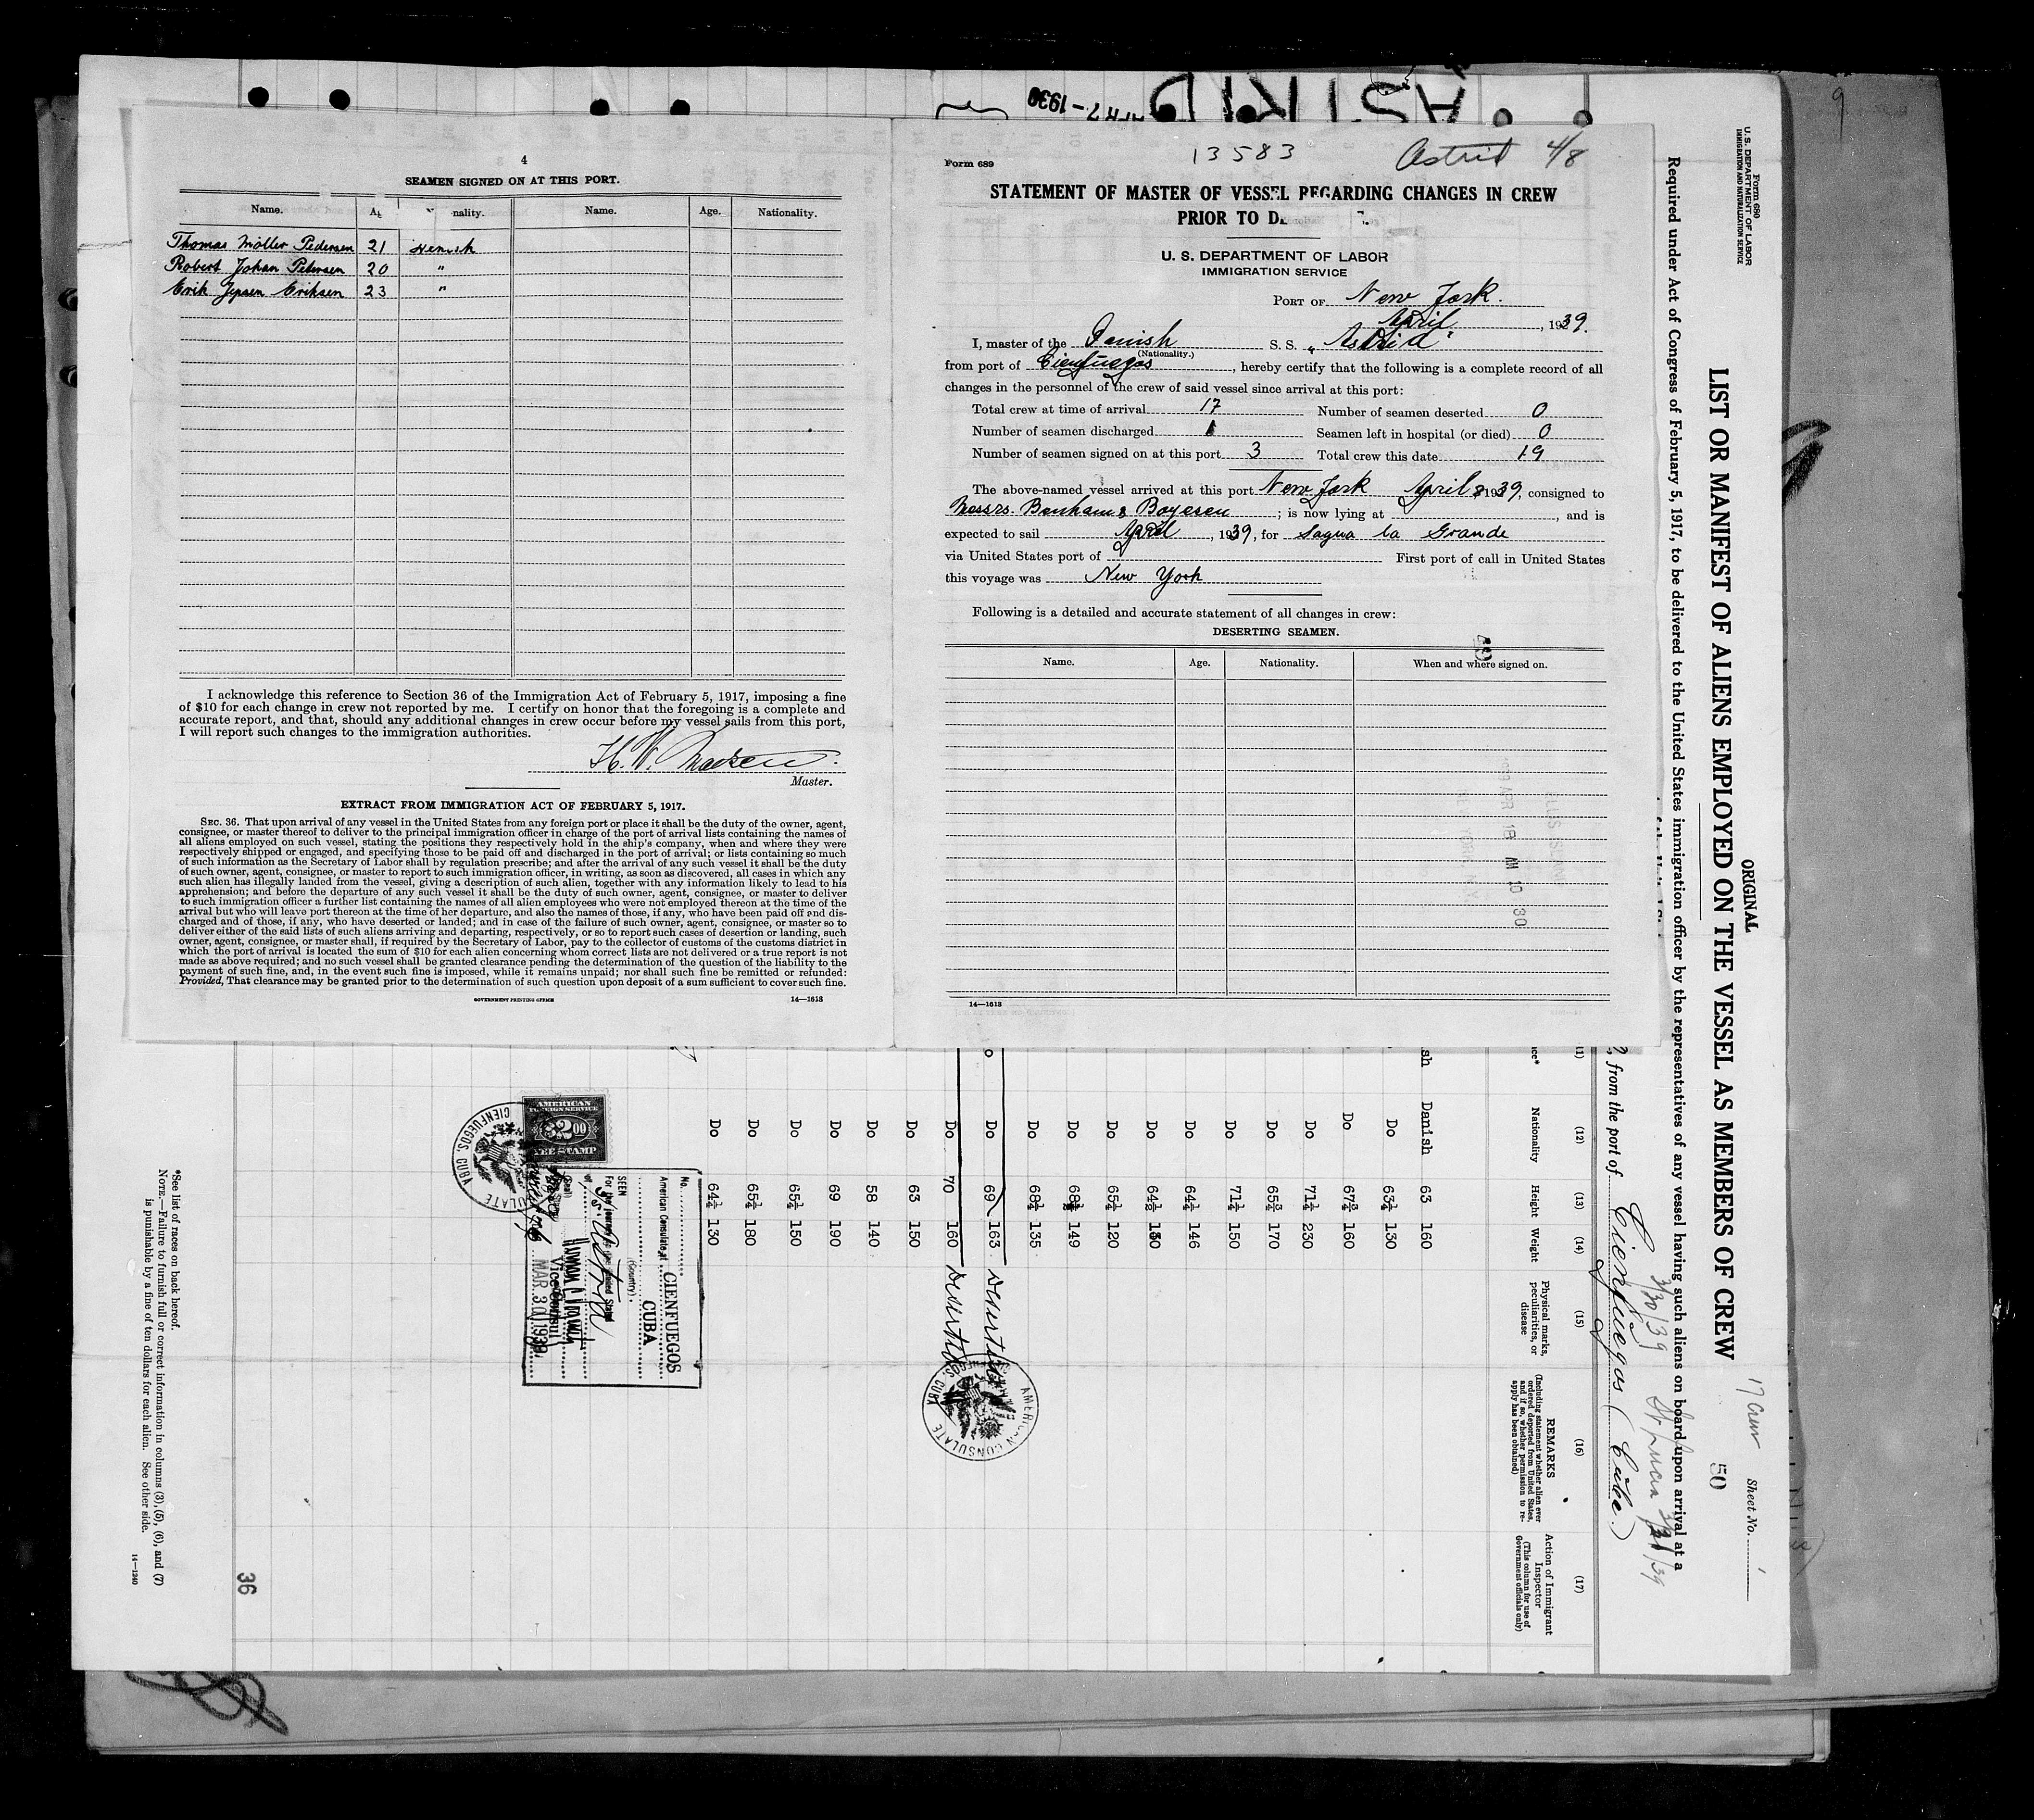 4
SEAMEN SIGNED ON AT THIS PORT.
Name. nality. Name. Age. Nationality.
Thomas Möller Pedersen 21
Robert Johan Petersen 20 "
Erik Jepsen Eriksen 23 "
I acknowledge this reference to Section 36 of the Immigration Act of February 5, 1917, imposing a fine
of $10 for each change in crew not reported by me. I certify on honor that the foregoing is a complete and
accurate report, and that, should any additional changes in crew occur before my vessel sails from this port,
I will report such changes to the immigration authorities.
H. W. Madsen
Master.
EXTRACT FROM IMMIGRATION ACT OF FEBRUARY 5, 1917.
SEC. 36. That upon arrival of any vessel in the United States from any foreign port or place it shall be the duty of the owner, agent,
consignee, or master thereof to deliver to the principal immigration officer in charge of the port of arrival lists containing the names of
all aliens employed on such vessel, stating the positions they respectively hold in the ship's company, when and where they were
respectively shipped or engaged, and specifying those to be paid off and discharged in the port of arrival; or lists containing so much
of such information as the Secretary of Labor shall by regulation prescribe; and after the arrival of any such vessel it shall be the duty
of such owner, agent, consignee, or master to report to such immigration officer, in writing, as soon as discovered, all cases in which any
such alien has illegally landed from the vessel, giving a description of such alien, together with any information likely to lead to his
apprehension; and before the departure of any such vessel it shall be the duty of such owner, agent, consignee, or master to deliver
to such immigration officer a further list containing the names of all alien employees who were not employed thereon at the time of the
arrival but who will leave port thereon at the time of her departure, and also the names of those, if any, who have been paid off and dis-
charged and of those, if any, who have deserted or landed; and in case of the failure of such owner, agent, consignee, or master so to
deliver either of the said lists of such aliens arriving and departing, respectively, or so to report such cases of desertion or landing, such
owner, agent, consignee, or master shall, if required by the Secretary of Labor, pay to the collector of customs of the customs district in
which the port of arrival is located the sum of $10 for each alien concerning whom correct lists are not delivered or a true report is not
made as above required; and no such vessel shall be granted clearance pending the determination of the question of the liability to the
payment of such fine, and, in the event such fine is imposed, while it remains unpaid; nor shall such fine be remitted or refunded:
Provided, That clearance may be granted prior to the determination of such question upon deposit of a sum sufficient to cover such fine.
GOVERNMENT PRINTING OFFICE 14—1613
Form 689 13583 Astrid 4/8
STATEMENT OF MASTER OF VESSEL REGARDING CHANGES IN CREW
PRIOR TO
U. S. DEPARTMENT OF LABOR
IMMIGRATION SERVICE
PORT OF New York.
April, 1939.
I, master of the Danish S. S. „Astrid"
(Nationality.)
from port of Cienfuegos, hereby certify that the following is a complete record of all
changes in the personnel of the crew of said vessel since arrival at this port:
Total crew at time of arrival 17 Number of seamen deserted 0
Number of seamen discharged 1 Seamen left in hospital (or died) 0
Number of seamen signed on at this port 3 Total crew this date 19
The above-named vessel arrived at this port New York April 8 1939, consigned to
Messrs. Benham & Boyesen; is now lying at , and is
expected to sail April, 1939, for Sagua la Grande
via United States port of First port of call in United States
this voyage was New York
Following is a detailed and accurate statement of all changes in crew:
DESERTING SEAMEN.
49
Name. Age. Nationality. When and where signed on.
ELLIS ISLAND
1939 APR 18 AM 10 30
NEW YORK, N.Y.
14—1613
ASTRID
1939
Form 680
U. S. DEPARTMENT OF LABOR
IMMIGRATION AND NATURALIZATION SERVICE
ORIGINAL
LIST OR MANIFEST OF ALIENS EMPLOYED ON THE VESSEL AS MEMBERS OF CREW
17 Crew 50 Sheet No. 1
Required under Act of Congress of February 5, 1917, to be delivered to the United States immigration officer by the representatives of any vessel having such aliens on board upon arrival at a
3/30/39 St Lucia 3/31/39
, from the port of Cienfuegos (Cuba.)
(12) (13) (14) (15) (16) (17)
Nationality Height Weight Physical marks, peculiarities, or disease
REMARKS
(Including statement whether alien ever ordered deported from United States, and if so, whether permission to re-apply has been obtained)
Action of Immigrant Inspector
(This column for use of Government officials only)
Danish 63 160
Do 63½ 130
Do 67¾ 160
Do 71½ 230
Do 65¾ 170
Do 71½ 150
Do 64½ 146
Do 64½ 130
Do 65½ 120
Do 68½ 149
Do 68½ 135
Do 69 163 Deserted
Do 70 160 Deserted
Do 63 150
Do 58 140
Do 69 190
Do 65½ 150
Do 65½ 180
Do 64½ 130
AMERICAN CONSULATE
CIENFUEGOS, CUBA
No.
American Consulate at CIENFUEGOS
CUBA
(Country)
SEEN
For the journey to the United States
S.S. Astrid
Vice Consul
MAR. 30 1939
AMERICAN FOREIGN SERVICE
$2 00
FEE STAMP
CIENFUEGOS, CUBA
*See list of races on back hereof.
NOTE.—Failure to furnish full or correct information in columns (3), (5), (6), and (7)
is punishable by a fine of ten dollars for each alien. See other side.
14—1240
36